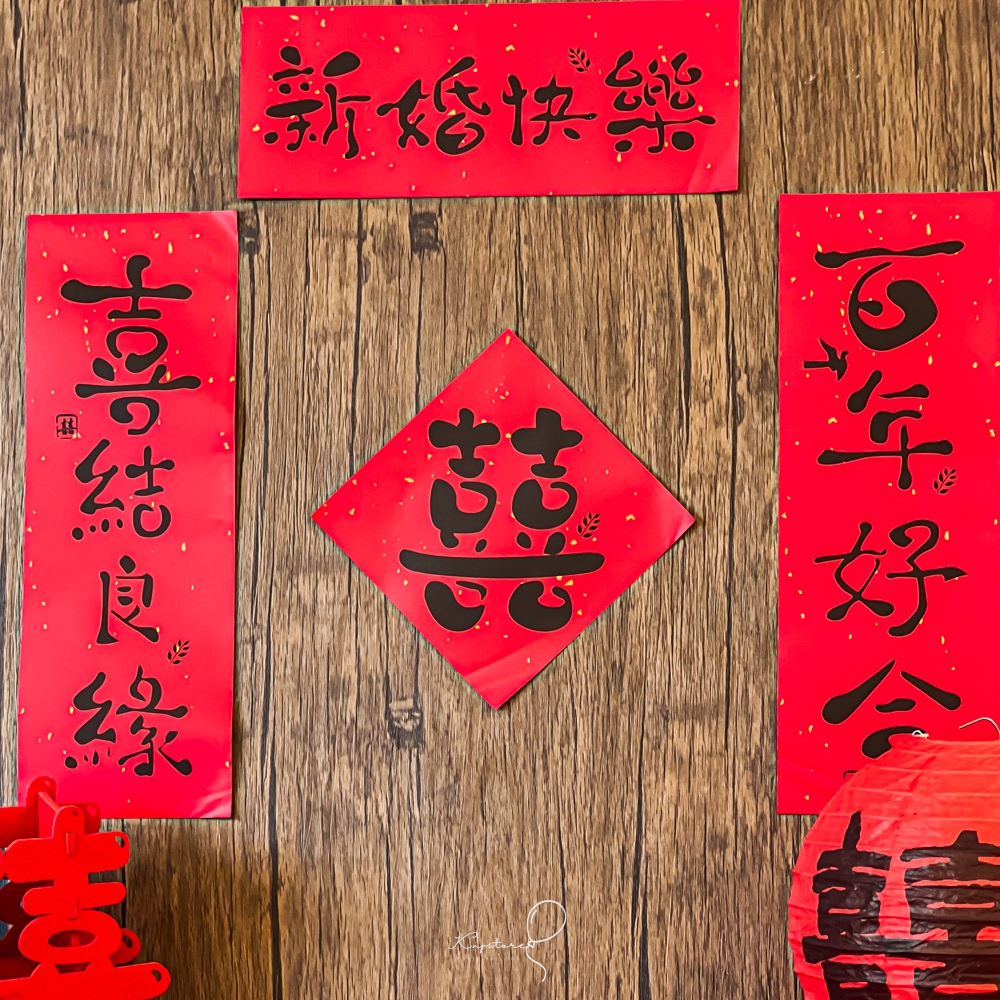 新婚快樂
百年好合
喜結良緣
囍
囍
囍
Kingstore